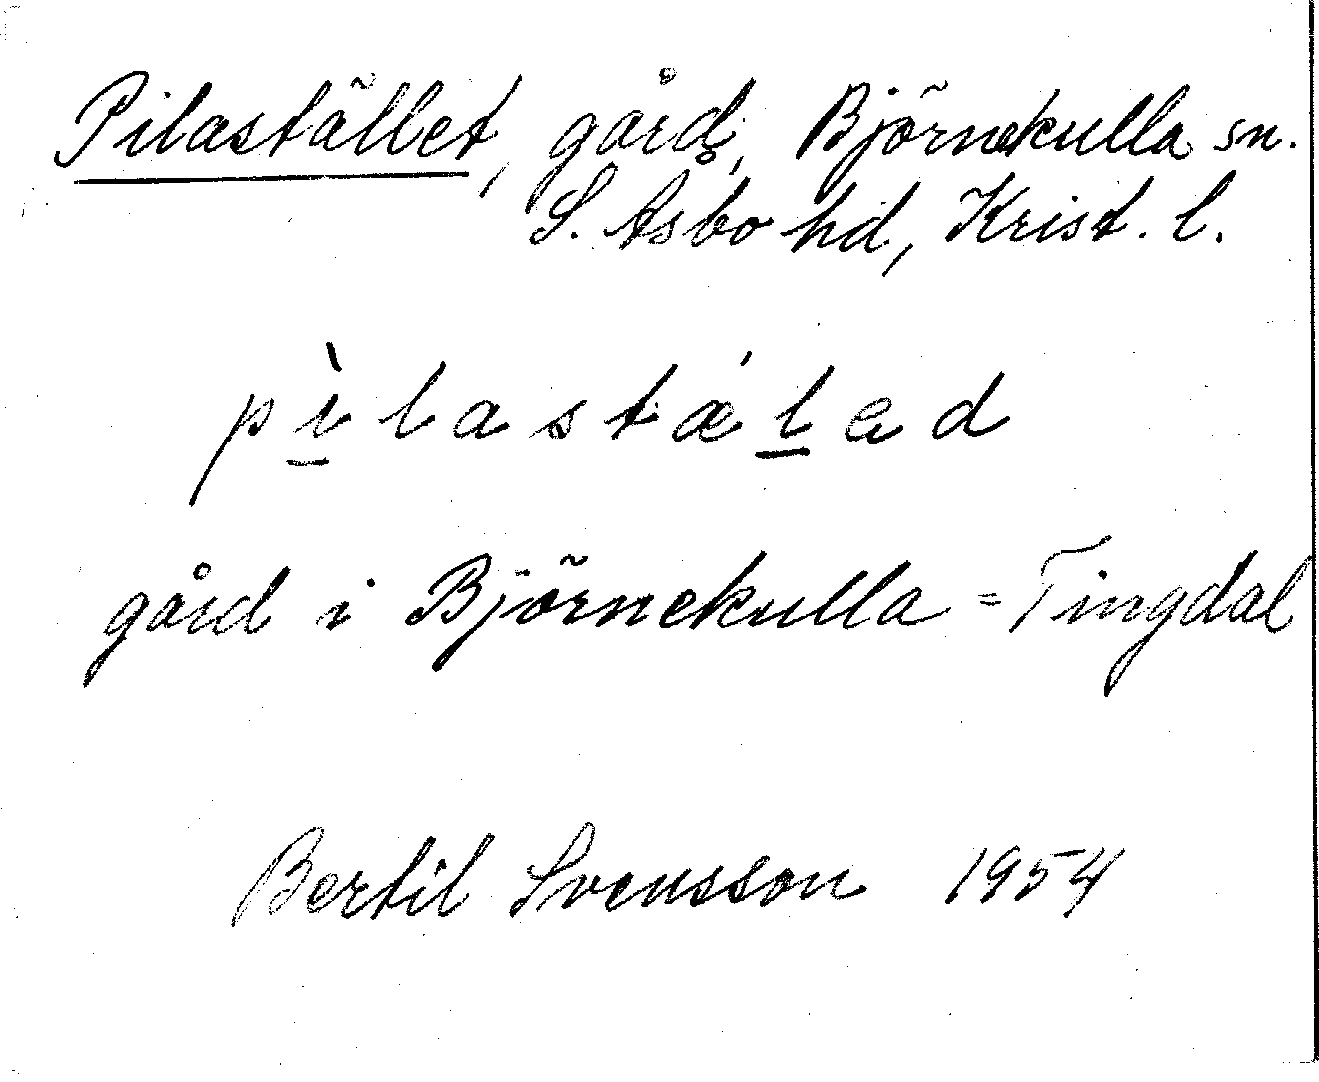 Pilastället, gård, Björnekulla sn.
S. Åsbo hd, Krist. l.
pìlastǽlad
gård i Björnekulla = Tingdal
Bertil Svensson 1954